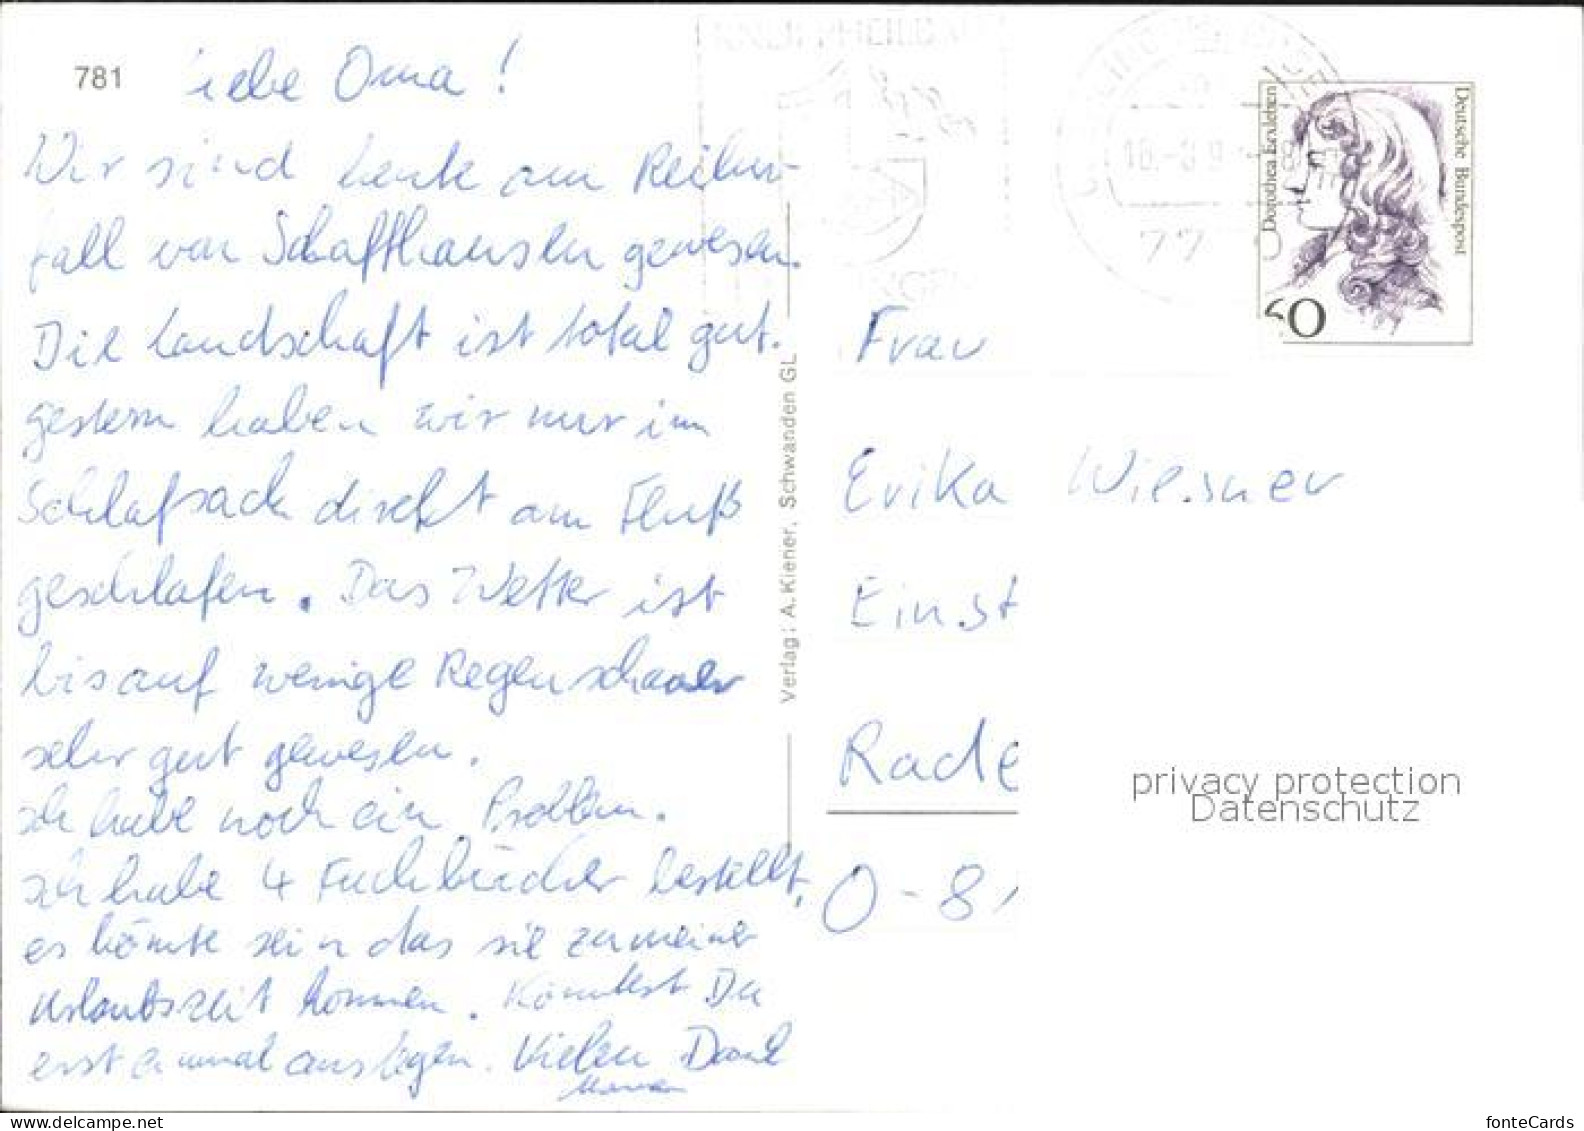 781
liebe Oma!
Wir sind heute am Rhein-
fall von Schaffhausen gewesen.
Die Landschaft ist total gut.
gestern haben wir nur im
Schlafsack direkt am Fluß
geschlafen. Das Wetter ist
bis auf wenige Regenschauer
sehr gut gewesen.
Ich habe noch ein Problem.
Ich habe 4 Fachbücher bestellt,
es könnte sein das sie zu meiner
Urlaubszeit kommen. Könntest Du
erst einmal auslegen. Vielen Dank
Verlag: A. Kiener, Schwanden GL
77
Deutsche Bundespost
Dorothea Erxleben
60
Frau
Erika Wiesner
Einst
Rade
O-81
privacy protection
Datenschutz
fonteCards